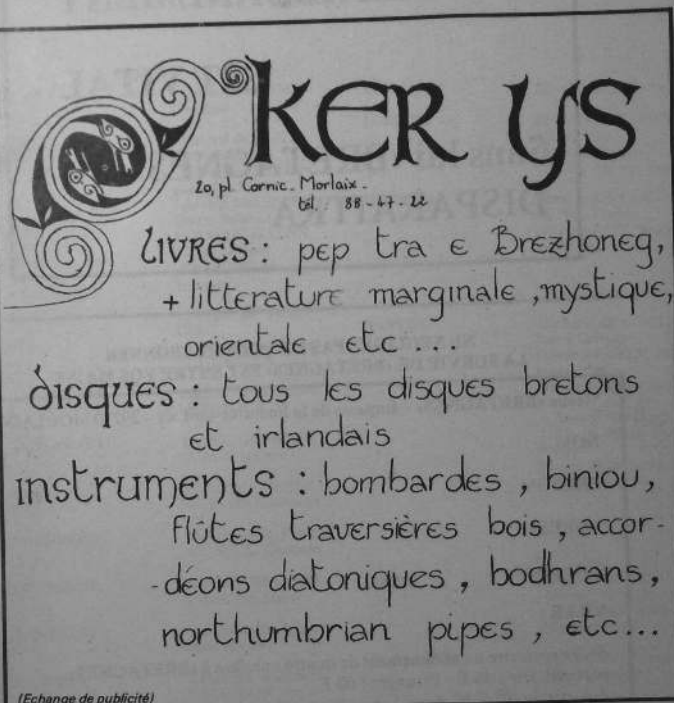 KER YS
20, pl. Cornic - Morlaix -
tél. 88-47-22
LIVRES : pep tra e Brezhoneg,
+ litterature marginale, mystique,
orientale etc ....
disques : tous les disques bretons
et irlandais
instruments : bombardes, biniou,
flûtes traversières bois, accor-
-déons diatoniques, bodhrans,
northumbrian pipes, etc...
(Echange de publicité)